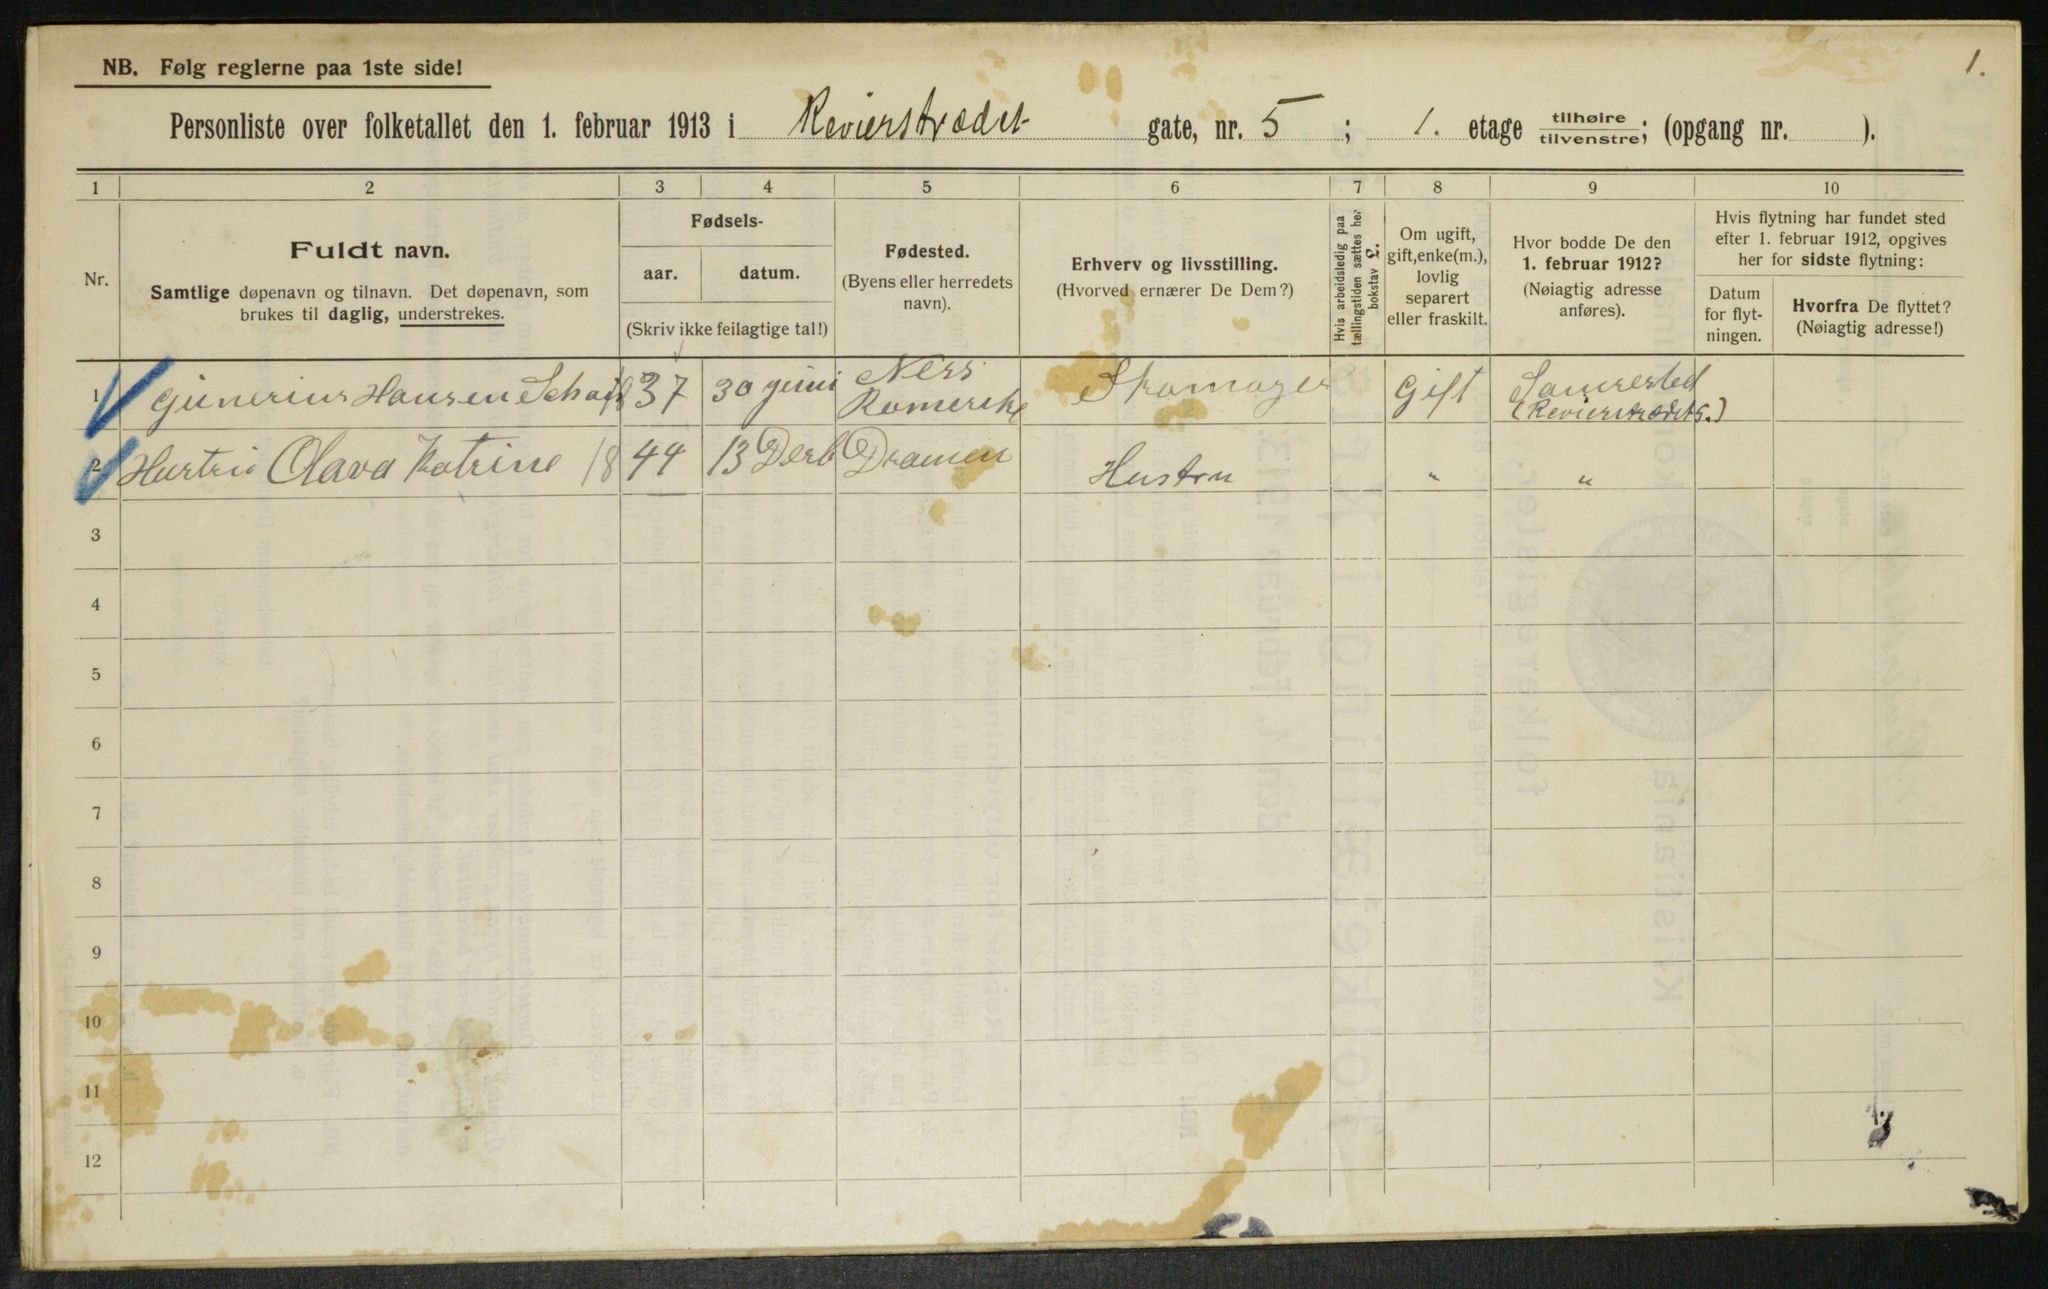 1.
NB. Følg reglerne paa 1ste side!
Personliste over folketallet den 1. februar 1913 i Revierstrædet gate, nr. 5; 1. etage tilhøire/tilvenstre; (opgang nr. ).
1 2 3 4 5 6 7 8 9 10
Nr.
Fuldt navn.
Samtlige døpenavn og tilnavn. Det døpenavn, som
brukes til daglig, understrekes.
Fødsels-
aar. datum.
(Skriv ikke feilagtige tal!)
Fødested.
(Byens eller herredets
navn).
Erhverv og livsstilling.
(Hvorved ernærer De Dem?)
Hvis arbeidsledig paa
tællingstiden sættes her
bokstav L.
Om ugift,
gift, enke(m.),
lovlig
separert
eller fraskilt.
Hvor bodde De den
1. februar 1912?
(Nøiagtig adresse
anføres).
Hvis flytning har fundet sted
efter 1. februar 1912, opgives
her for sidste flytning:
Datum
for flyt-
ningen.
Hvorfra De flyttet?
(Nøiagtig adresse!)
1 Gunerius Hansen 37 30 juni Ness Romerike Skomager Gift Samested
(Revierstrædet 5.)
2 Hustru Olava Katrine 1844 13 Decb Dramen Hustru " "
3
4
5
6
7
8
9
10
11
12